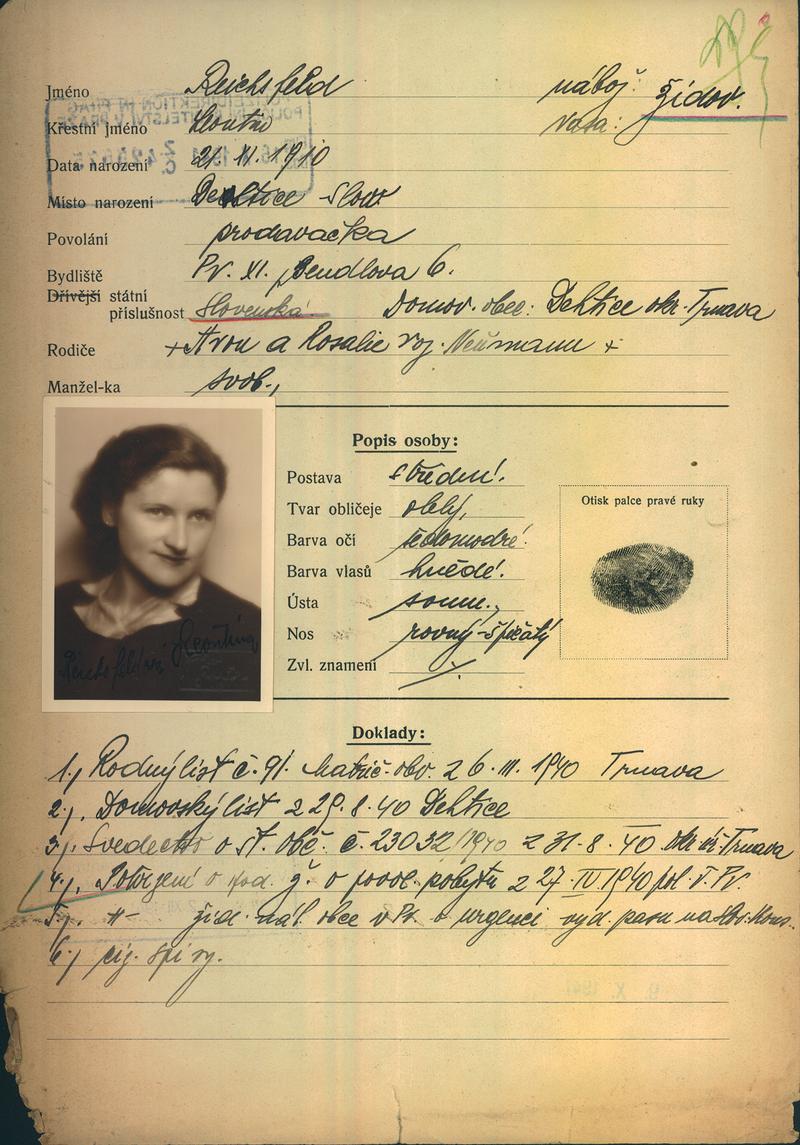 Jméno Reichsfeld nábož. židov.
Křestní jméno rasa:
Data narození 21. XI. 1910
Místo narození Slov
Povolání prodavačka
Bydliště Pr. XI. Bendlova 6.
Dřívější státní
příslušnost Slovenská. Domov. obec: Dehtice okr. Trnava
Rodiče + Aron a Rosalie roz. Neumann +
Manžel-ka svob.,
Popis osoby:
Postava střední.
Tvar obličeje oblý,
Barva očí šedomodré.
Barva vlasů hnědé.
Ústa soum.,
Nos rovný-špičatý
Zvl. znamení
Otisk palce pravé ruky
Reichsfeldová Leontina
Doklady:
1.) Rodný list č. 91. matrič. obv. z 6. III. 1940 Trnava
2.) Domovský list z 29. 8. 40 Dehtice
3.) Svedectvo o št. obč. č. 23032/1940 z 31. 8. 40 Trnava
4.) Potvrzení o pod. ž. o povol. pobytu z 27. IV. 1940 pol. ř. Pr.
5.) -"- žid. náb. obce v Pr. o urgenci vyd. pasu na Slov. Kons.
6.)